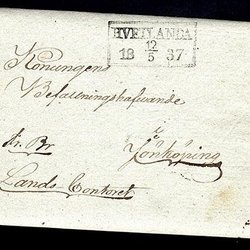 HVETLANDA
18 12/5 37
Konungens
Befallningshafwande
fr. Br
i
Jönköping
Lands Contoret